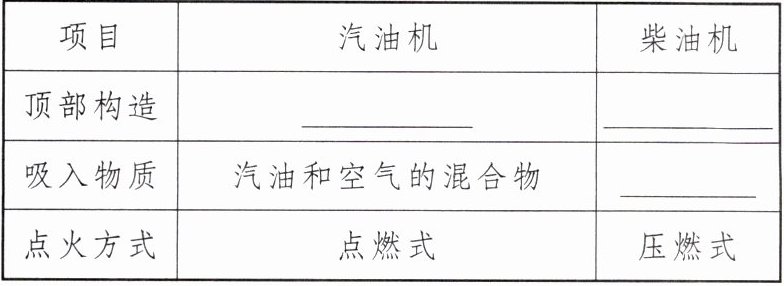 项目 汽油机 柴油机
顶部构造
吸入物质 汽油和空气的混合物
点火方式 点燃式 压燃式